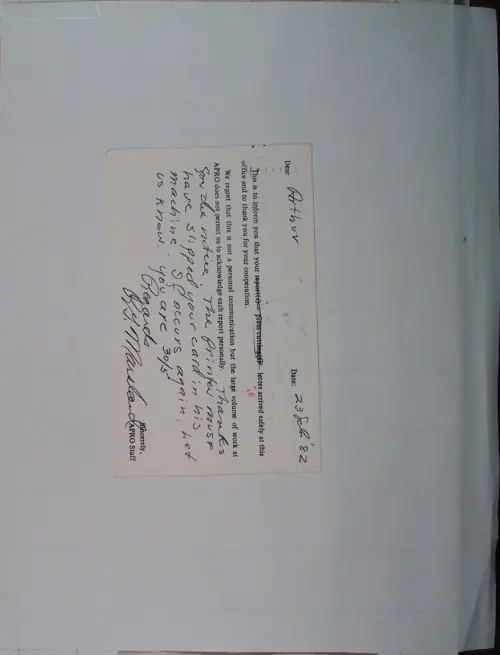 Dear Arthur Date: 23 Feb '82
This is to inform you that your report(s) – press cutting(s) – letter arrived safely at this
office and to thank you for your cooperation.
We regret that this is not a personal communication but the large volume of work at
APRO does not permit us to acknowledge each report personally. Thanks
for the notice. The printer must
have slipped your card in his
machine. If occurs again, let
us know. You are 30/5
Regards
Sincerely,
APRO Staff